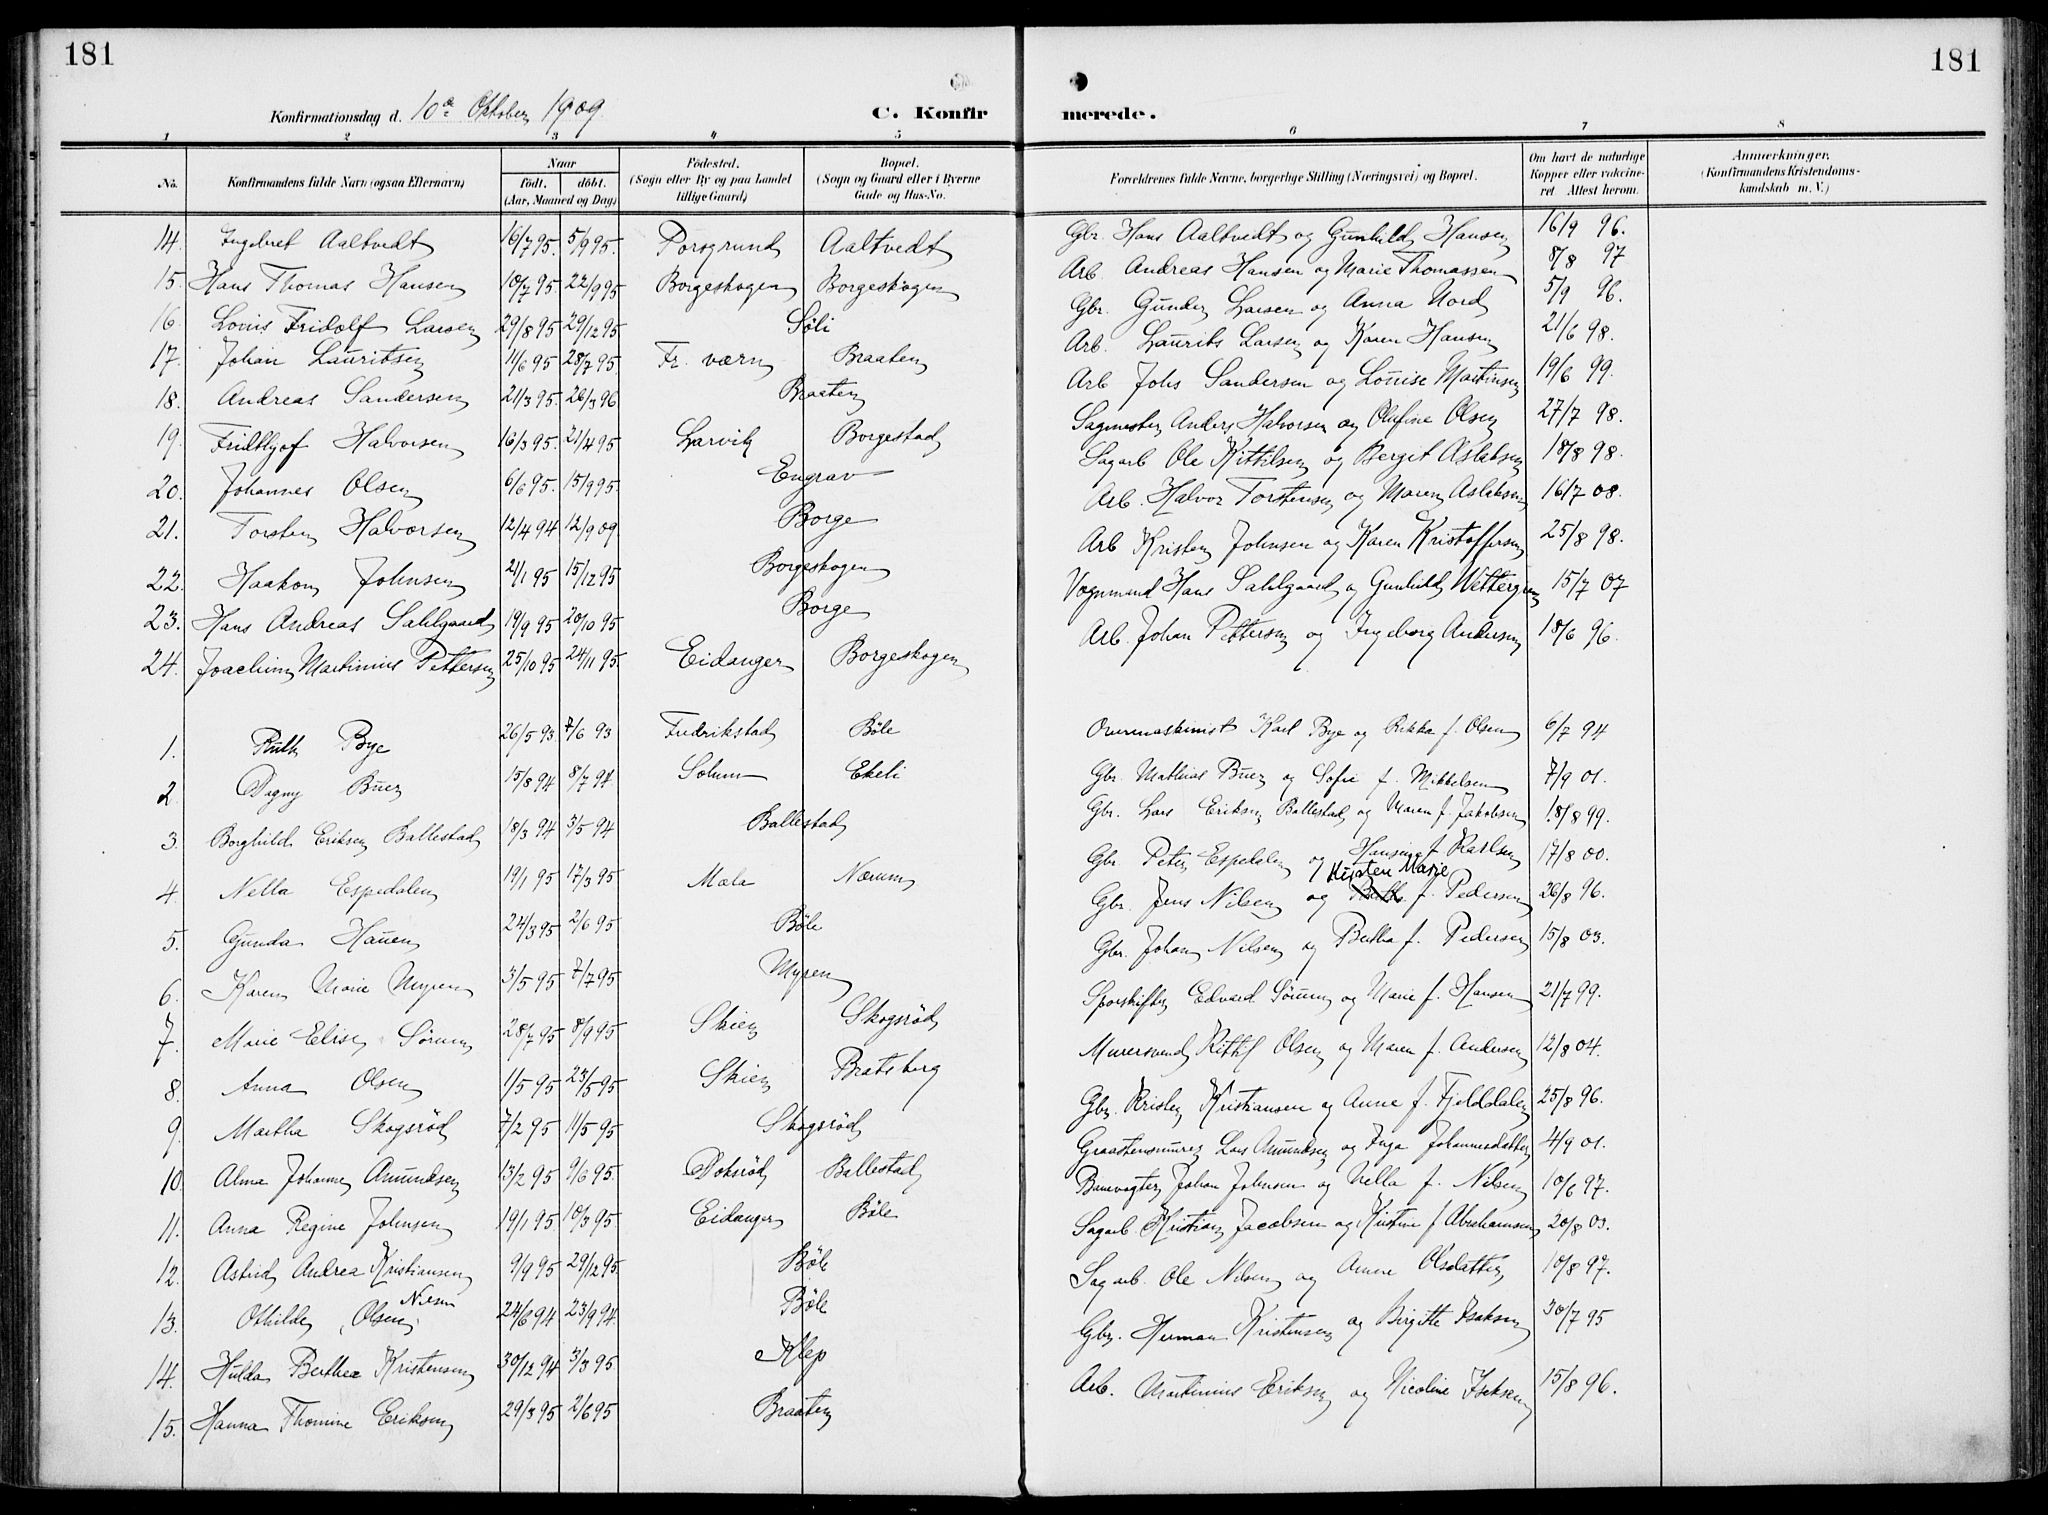 181
181
Konfirmationsdag d. 10de Oktober 1909
C. Konfirmerede.
1 2 3 4 5 6 7 8
No. | Konfirmandens fulde Navn (ogsaa Efternavn) | Naar født. døbt. (Aar, Maaned og Dag) | Fødested. (Sogn eller By og paa Landet tillige Gaard) | Bopæl. (Sogn og Gaard eller i Byerne Gade og Hus-No. | Forældrenes fulde Navne, borgerlige Stilling (Næringsvei) og Bopæl. | Om havt de naturlige Kopper eller vaccineret. Attest herom. | Anmærkninger. (Konfirmandens Kristendomskundskab m. V.)
14. Ingebret Aaltvedt 16/7 95. 5/9 95. Porsgrund Aaltvedt Gbr. Hans Aaltvedt og Gunhild Hansen 16/9 96.
15. Hans Thomas Hansen 10/7 95. 22/9 95 Borgeskogen Borgeskogen Arb. Andreas Hansen og Marie Thomassen 8/8 97
16. Louis Fridolf Larsen 29/8 95 29/12 95 Søli Gbr. Gunder Larsen og Anna Nord 5/9 96.
17. Johan Lauritsen 11/6 95 28/7 95. Fr. værn Braaten Arb. Laurits Larsen og Karen Hansen 21/6 98.
18. Andreas Sandersen 21/3 95. 26/3 96 Braaten Arb Johs Sandersen og Louise Martinsen 19/6 99.
19. Fridthjof Halvorsen 16/3 95. 21/4 95 Larvik Borgestad Sagmester Anders Halvorsen og Olufine Olsen 27/7 98.
20. Johannes Olsen 6/6 95. 15/9 95. Engrav Sagarb Ole Kittilsen og Bergit Aslaksen 18/8 98.
21. Torsten Halvorsen 12/4 94 12/9 09. Borge Arb. Halvor Torstensen og Maren Aslaksen 16/7 08.
22. Haakon Johnsen 21/1 95 15/12 95 Borgeskogen Arb Kristen Johnsen og Karen Kristoffersen 25/8 98.
23. Hans Andreas Sahlgaard 19/9 95 20/10 95. Borge Vognmand Hans Sahlgaard og Gunhild Wettergren 15/7 07
24. Joachim Martinius Pettersen 25/10 95 24/11 95. Eidanger Borgeskogen Arb. Johan Pettersen og Ingeborg Andersen 18/6 96.
1. Ruth Bye 26/5 93 7/6 93 Fredrikstad Bøle Overmaskinist Karl Bye og Rikka f. Olsen 6/7 94
2 Dagny Buer 15/8 94 8/7 94 Solum Ekeli Gbr. Mathias Buer og Sofie f. Mikkelsen 7/9 01.
3. Borghild Eriksen Ballestad 18/3 94 3/5 94 Ballestad Gbr. Lars Eriksen Ballestad og Maren f. Jakobsen 18/8 99.
4 Nella Espedalen 19/1 95 17/3 95 Mæla Nærum Gbr Peter Espedalen og Hansine f Karlsen 17/8 00.
5. Gunda Hauen 24/3 95 2/6 95 Bøle Gbr. Jens Nilsen og Kirsten Marie f. Pedersen 26/8 96.
6. Karen Marie Myren 3/5 95 7/7 95 Myren Gbr. Johan Nilsen og Bertha f. Pedersen 15/8 03.
7. Marie Elise Sørum 28/7 95 8/9 95 Skien Skogsrød Sporskifter Edvard Sørum og Marie f. Hansen 21/7 99.
8. Anna Olsen 1/5 95 23/5 95 Skien Bratsberg Murersvend Kittil Olsen og Maren f. Andersen 12/8 04.
9. Martha Skogsrød 7/2 95 11/5 95 Skogsrød Gbr. Kristen Kristiansen og Anne f. Fjelddalen 25/8 96.
10. Alma Johanne Amundsen 13/2 95 9/6 95. Doksrød Ballestad Graastensmurer Lars Amundsen og Inga Johannesdatter 4/9 01.
11. Anna Regine Johnsen 19/1 95 10/3 95. Eidanger Bøle Banevogter Johan Johnsen og Nella f. Nilsen 10/6 97.
12. Astrid Andrea Kristiansen 9/9 95 29/12 95. Bøle Sagarb. Kristian Jacobsen og Kristine f Abrahamsen 20/8 03.
13. Othilde (Olsen) Nilsen 24/6 94 23/9 94. Bøle Sagarb. Ole Nilsen og Anne Olsdatter 10/8 97.
14. Hulda Berthea Kristensen 30/12 94 3/3 95. Klep Gbr. Herman Kristensen og Birgitte Isaksen 30/7 95
15. Hanna Thomine Eriksen 29/3 95 2/6 95 Braaten Arb. Martinius Eriksen og Nicoline Isaksen 15/8 96.